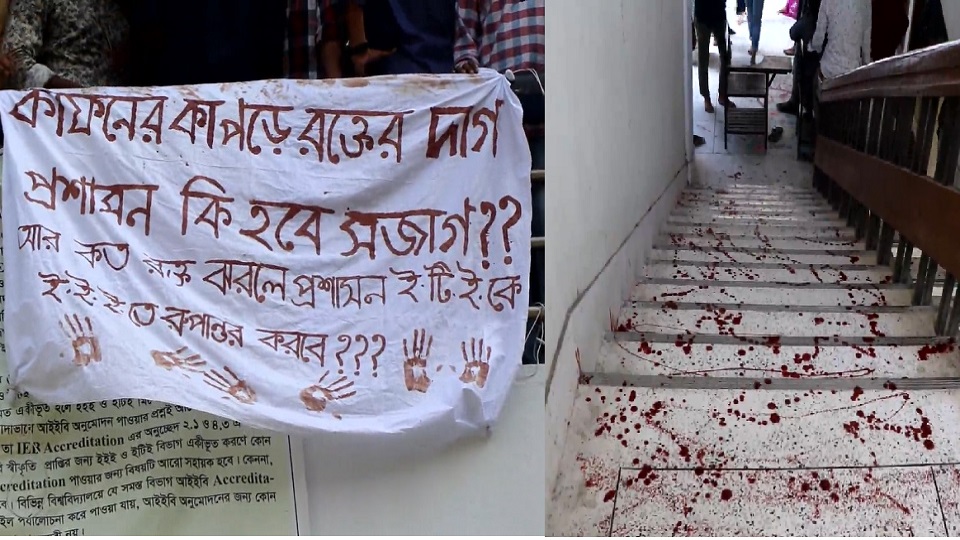 কাফনের কাপড়ে রক্তের দাগ
প্রশাসন কি হবে সজাগ??
আর কত রক্ত ঝরলে প্রশাসন ই.টি.ই.কে
ই.ই.ই তে রুপান্তর করবে???
একীভূত হলে ইইই ও
আইইবি অনুমোদন পাওয়ার প্রশ্নই
তা IEB Accreditation এর অনুচ্ছেদ ২.১ ও ৪.৩
স্বীকৃতি প্রাপ্তির জন্য ইইই ও ইটিই বিভাগ একীভূত করণে কোন
ccreditation পাওয়ার জন্য বিষয়টি আরো সহায়ক হবে। কেননা,
বিভিন্ন বিশ্ববিদ্যালয়ে যে সমস্ত বিভাগ আইইবি Accredita-
পর্যালোচনা করে পাওয়া যায়, আইইবি অনুমোদনের জন্য কোন
নয়।